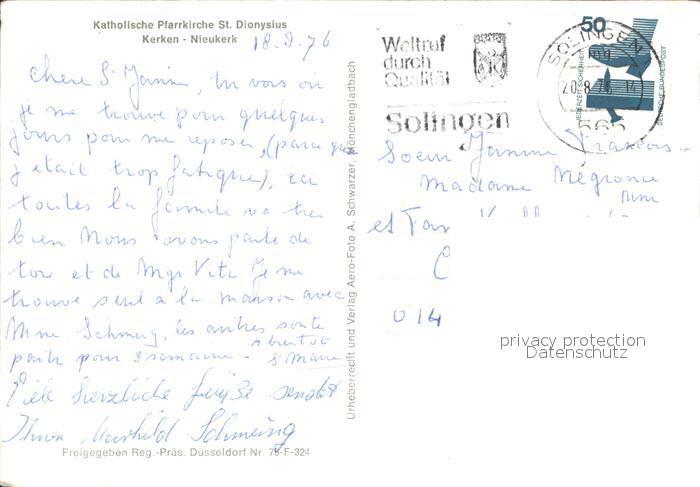 Katholische Pfarrkirche St. Dionysius
Kerken - Nieukerk
18.8.76
Chere Sr Janine, tu vois ou
je me trouve pour quelques
jours pour me reposer, (parce que
j etait trop fatiguée), ici
toutes la famille va tres
bien Nous avons parle de
toi et de Mgr Vita Je me
trouve seul a la maison avec
Mme Schmeing, les autres sonte
partir pour 3 semaine - a bientot
Sr Marie
Viele herzliche Grüße sendet
Ihnen Mathild Schmeing
Freigegeben Reg.-Präs. Düsseldorf Nr. 75-F-324
Urheberrecht und Verlag Aero-Foto A. Schwarzer, Mönchengladbach
Weltruf
durch
Qualität
Solingen
SOLINGEN
20.-8.76
565
50
JEDERZEIT SICHERHEIT
DEUTSCHE BUNDESPOST
Soeur Janine Francois
Madame Négronie
et Fam
C
014
privacy protection
Datenschutz